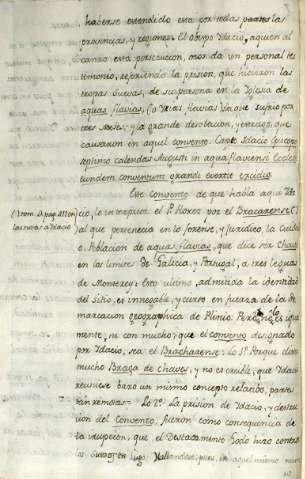 haberse extendido esta por todas partes las
provincias, y regiones. El obispo Idacio, a quien al
canzó esta persecucion, nos da un personal tes
timonio, refiriendo la prision, que hicieron las
tropas suevas, de su persona en la Iglesia de
aguas flavias, que sufrio por
tres meses, y la grande desolacion, y estrago, que
causaron en aquel convento. Idacio Episcopo
septimo calendas Augusti in aquæflaviensi Eccles
eundem conventum grandi evertit excidio.
Este convento de que habla aqui Ida
cio, le interpreta el P. Florez por el Bracarense,
al que pertenecia en lo forense, y juridico, la Ciudad
o Poblacion de aguas flavias, que dice ser Chaves
en los limites de Galicia, y Portugal, a tres leguas
de Monterey: Esto ultimo, admitida la identidad
del sitio, es innegable, y cierto en fuerza de la de
marcacion geographica de Plinio. Pero no es igual
mente, ni con mucho, que el convento designado
por Idacio, sea el Bracharense: lo 1º Porque dista
mucho Braga de chaves, y no es creible, que Idacio
reuniese baxo un mismo concepto relacion, partes
tan remotas. Lo 2º. La prision de Idacio, y destruc
cion del Convento, fueron como consequencia de
la irrupcion, que el Destacamento Godo hizo contra
los suevos en Lugo. Hallandose, pues, en aquel mismo